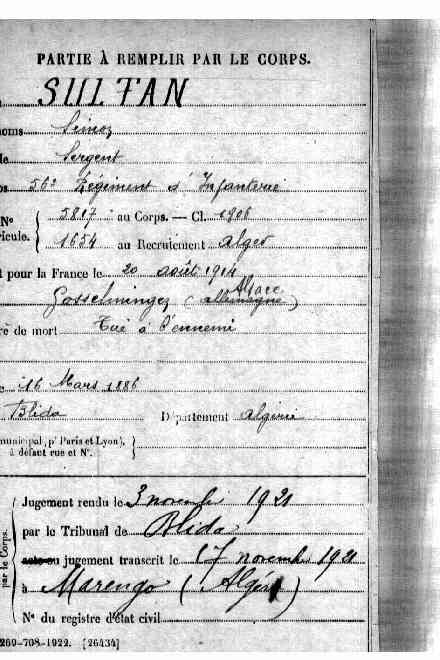 PARTIE À REMPLIR PAR LE CORPS.
SULTAN
noms Simoz
le Sergent
ps 56e Régiment d'Infanterie
N° 5817 au Corps. — Cl. 1906
ricule. 1654 au Recrutement Alger
t pour la France le 20 août 1914
Alsace
Gosselminger (allemagne)
re de mort Tué à l'ennemi
e 16 Mars 1886
Blida Département Algérie
municipal, pr Paris et Lyon),
à défaut rue et N°.
par le Corps.
Jugement rendu le 3 novembre 1921
par le Tribunal de Blida
acte ou jugement transcrit le 17 novembre 1921
à Marengo (Alger)
N° du registre d'état civil
269-708-1922. [26434]